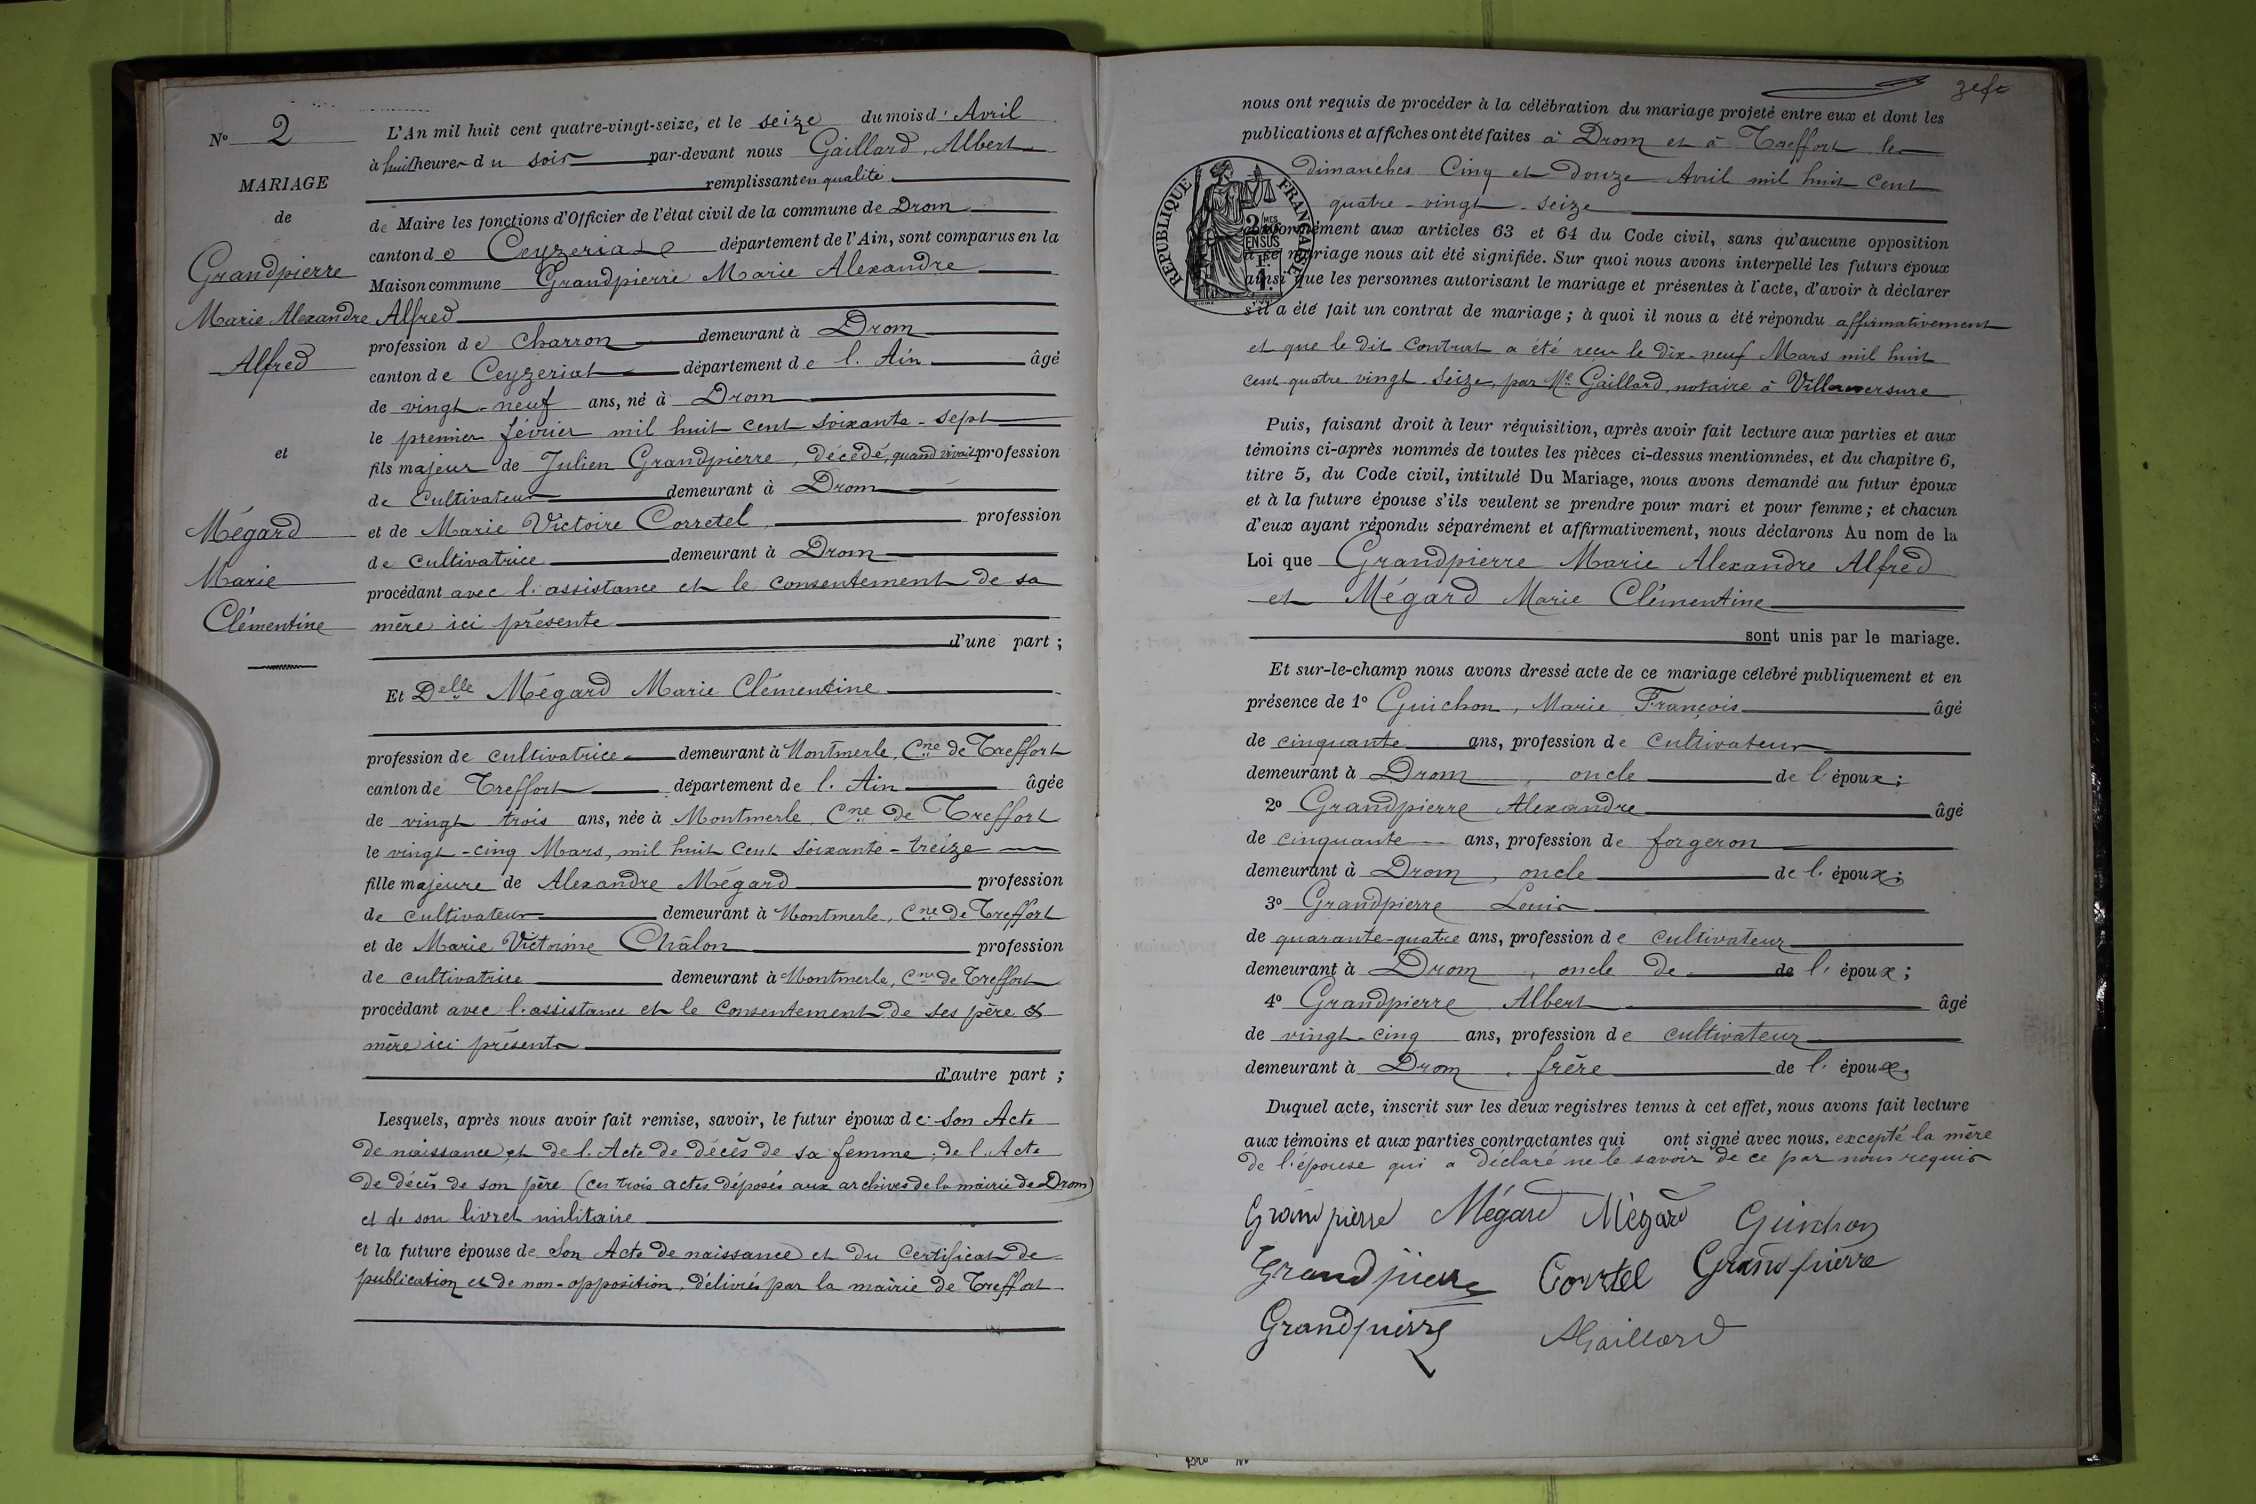 3e fo
N° 2
MARIAGE
de
Grandpierre
Marie Alexandre
Alfred
et
Mégard
Marie
Clémentine
L'An mil huit cent quatre-vingt-seize, et le seize du mois d'Avril
à huit heures du soir par-devant nous Gaillard, Albert
remplissant en qualité
de Maire les fonctions d'Officier de l'état civil de la commune de Drom
canton de Ceyzeriat département de l'Ain, sont comparus en la
Maison commune Grandpierre Marie Alexandre
Alfred
profession de charron demeurant à Drom
canton de Ceyzeriat département de l'Ain âgé
de vingt-neuf ans, né à Drom
le premier février mil huit cent soixante-sept
fils majeur de Julien Grandpierre, décédé, quand vivait profession
de cultivateur demeurant à Drom
et de Marie Victoire Corretel, profession
de cultivatrice demeurant à Drom
procédant avec l'assistance et le consentement de sa
mère ici présente
d'une part ;
Et Delle Mégard Marie Clémentine
profession de cultivatrice demeurant à Montmerle, Cne de Treffort
canton de Treffort département de l'Ain âgée
de vingt trois ans, née à Montmerle, Cne de Treffort
le vingt-cinq Mars, mil huit cent soixante-treize
fille majeure de Alexandre Mégard profession
de cultivateur demeurant à Montmerle, Cne de Treffort
et de Marie Victorine Châlon profession
de cultivatrice demeurant à Montmerle, Cne de Treffort
procédant avec l'assistance et le consentement de ses père et
mère ici présents
d'autre part ;
Lesquels, après nous avoir fait remise, savoir, le futur époux de : son Acte
de naissance, et de l'Acte de décès de sa femme ; de l'Acte
de décès de son père (ces trois actes déposés aux archives de la mairie de Drom)
et de son livret militaire
et la future épouse de son Acte de naissance et du certificat de
publication et de non-opposition, délivrés par la mairie de Treffort
nous ont requis de procéder à la célébration du mariage projeté entre eux et dont les
publications et affiches ont été faites à Drom et à Treffort les
dimanches Cinq et douze Avril mil huit cent
quatre-vingt-seize
RÉPUBLIQUE FRANÇAISE
conformément aux articles 63 et 64 du Code civil, sans qu'aucune opposition
à ce mariage nous ait été signifiée. Sur quoi nous avons interpellé les futurs époux
ainsi que les personnes autorisant le mariage et présentes à l'acte, d'avoir à déclarer
s'il a été fait un contrat de mariage ; à quoi il nous a été répondu affirmativement
et que le dit contrat a été reçu le dix-neuf Mars mil huit
cent quatre vingt-seize, par Me Gaillard, notaire à Villereversure
Puis, faisant droit à leur réquisition, après avoir fait lecture aux parties et aux
témoins ci-après nommés de toutes les pièces ci-dessus mentionnées, et du chapitre 6,
titre 5, du Code civil, intitulé Du Mariage, nous avons demandé au futur époux
et à la future épouse s'ils veulent se prendre pour mari et pour femme ; et chacun
d'eux ayant répondu séparément et affirmativement, nous déclarons Au nom de la
Loi que Grandpierre Marie Alexandre Alfred
et Mégard Marie Clémentine
sont unis par le mariage.
Et sur-le-champ nous avons dressé acte de ce mariage célébré publiquement et en
présence de 1° Guichon, Marie François âgé
de cinquante ans, profession de cultivateur
demeurant à Drom, oncle de l'époux ;
2° Grandpierre Alexandre âgé
de cinquante ans, profession de forgeron
demeurant à Drom, oncle de l'époux ;
3° Grandpierre Louis
de quarante-quatre ans, profession de cultivateur
demeurant à Drom, oncle de de l'époux ;
4° Grandpierre Albert âgé
de vingt-cinq ans, profession de cultivateur
demeurant à Drom, frère de l'époux.
Duquel acte, inscrit sur les deux registres tenus à cet effet, nous avons fait lecture
aux témoins et aux parties contractantes qui ont signé avec nous, excepté la mère
de l'épouse qui a déclaré ne le savoir de ce par nous requis
Grandpierre Mégard Mégard Guichon
Grandpierre Corrtel Grandpierre
Grandpierre AGaillard